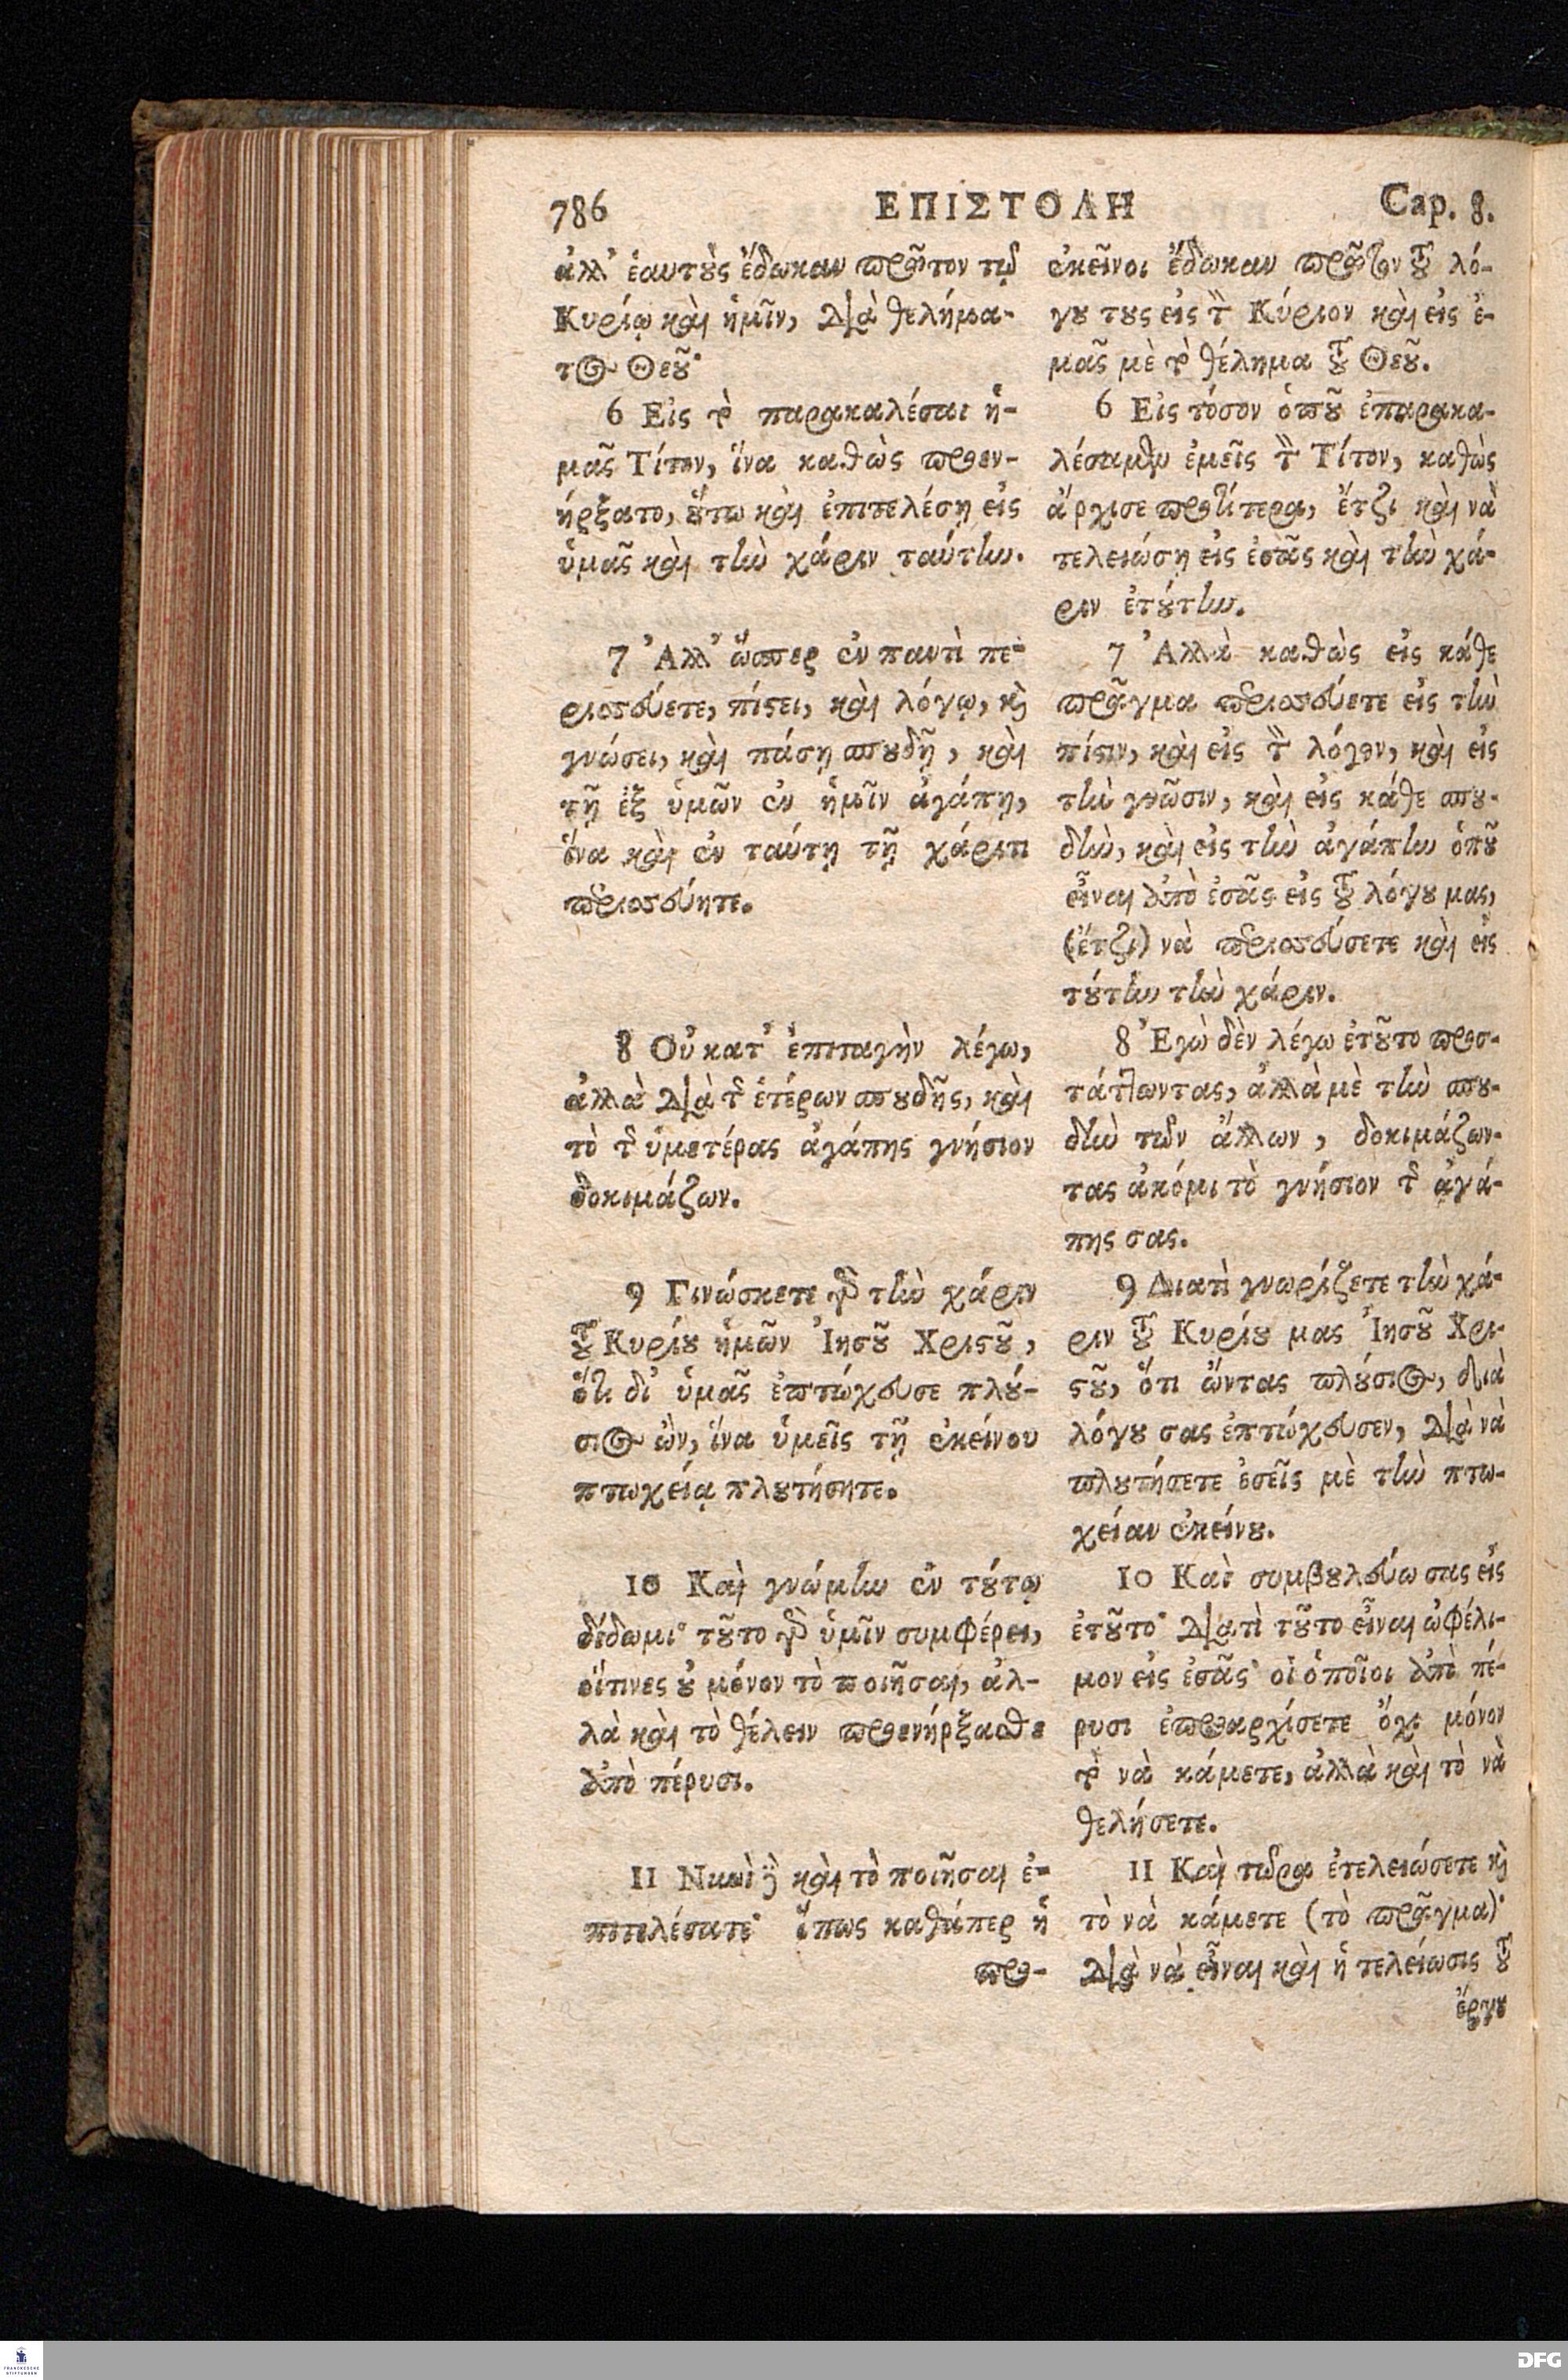 786 ΕΠΙΣΤΟΛΗ Cap. 8.
ἀλλ' ἑαυτοὺς ἔδωκαν πρῶτον τῷ
Κυρίῳ καὶ ἡμῖν, διὰ θελήμα-
τος Θεοῦ·
6 Εἰς τὸ παρακαλέσαι ἡ-
μᾶς Τίτον, ἵνα καθὼς προεν-
ήρξατο, οὕτω καὶ ἐπιτελέσῃ εἰς
ὑμᾶς καὶ τὴν χάριν ταύτην.
7 Ἀλλ' ὥσπερ ἐν παντὶ πε-
ρισσεύετε, πίστει, καὶ λόγῳ, καὶ
γνώσει, καὶ πάσῃ σπουδῇ, καὶ
τῇ ἐξ ὑμῶν ἐν ἡμῖν ἀγάπῃ,
ἵνα καὶ ἐν ταύτῃ τῇ χάριτι
περισσεύητε.
8 Οὐ κατ' ἐπιταγὴν λέγω,
ἀλλὰ διὰ τῆς ἑτέρων σπουδῆς, καὶ
τὸ τῆς ὑμετέρας ἀγάπης γνήσιον
δοκιμάζων.
9 Γινώσκετε γὰρ τὴν χάριν
τοῦ Κυρίου ἡμῶν Ἰησοῦ Χριστοῦ,
ὅτι δι' ὑμᾶς ἐπτώχευσε πλού-
σιος ὢν, ἵνα ὑμεῖς τῇ ἐκείνου
πτωχείᾳ πλουτήσητε.
10 Καὶ γνώμην ἐν τούτῳ
δίδωμι· τοῦτο γὰρ ὑμῖν συμφέρει,
οἵτινες οὐ μόνον τὸ ποιῆσαι, ἀλ-
λὰ καὶ τὸ θέλειν προενήρξασθε
ἀπὸ πέρυσι.
11 Νυνὶ δὲ καὶ τὸ ποιῆσαι ἐ-
πιτελέσατε· ὅπως καθάπερ ἡ
προ-
ἐκεῖνοι ἔδωκαν πρῶτον τοῦ λό-
γου τους εἰς τὸν Κύριον καὶ εἰς ἐ-
μᾶς μὲ τὸ θέλημα τοῦ Θεοῦ.
6 Εἰς τόσον ὁποῦ ἐπαρακα-
λέσαμεν ἐμεῖς τὸν Τίτον, καθὼς
ἄρχισε προτίτερα, ἔτζι καὶ νὰ
τελειώσῃ εἰς ἐσᾶς καὶ τὴν χά-
ριν ἐτούτην.
7 Ἀλλὰ καθὼς εἰς κάθε
πρᾶγμα περισσεύετε εἰς τὴν
πίστιν, καὶ εἰς τὸν λόγον, καὶ εἰς
τὴν γνῶσιν, καὶ εἰς κάθε σπου-
δὴν, καὶ εἰς τὴν ἀγάπην ὁποῦ
εἶναι ἀπὸ ἐσᾶς εἰς τοῦ λόγου μας,
(ἔτζι) νὰ περισσεύσετε καὶ εἰς
τούτην τὴν χάριν.
8 Ἐγὼ δὲν λέγω ἐτοῦτο προσ-
τάττωντας, ἀλλὰ μὲ τὴν σπου-
δὴν τῶν ἄλλων, δοκιμάζων-
τας ἀκόμι τὸ γνήσιον τῆς ἀγά-
πης σας.
9 Διατὶ γνωρίζετε τὴν χά-
ριν τοῦ Κυρίου μας Ἰησοῦ Χρι-
στοῦ, ὅτι ὤντας πλούσιος, διὰ
λόγου σας ἐπτώχευσεν, διὰ νὰ
πλουτήσετε ἐσεῖς μὲ τὴν πτω-
χείαν ἐκείνου.
10 Καὶ συμβουλεύω σας εἰς
ἐτοῦτο· διατὶ τοῦτο εἶναι ὠφέλι-
μον εἰς ἐσᾶς· οἱ ὁποῖοι ἀπὸ πέ-
ρυσι ἐπροαρχίσετε ὄχι μόνον
τὸ νὰ κάμετε, ἀλλὰ καὶ τὸ νὰ
θελήσετε.
11 Καὶ τώρα ἐτελειώσετε καὶ
τὸ νὰ κάμετε (τὸ πρᾶγμα)·
διὰ νὰ εἶναι καὶ ἡ τελείωσις τοῦ
ἔργου
FRANCKESCHE
STIFTUNGEN
DFG